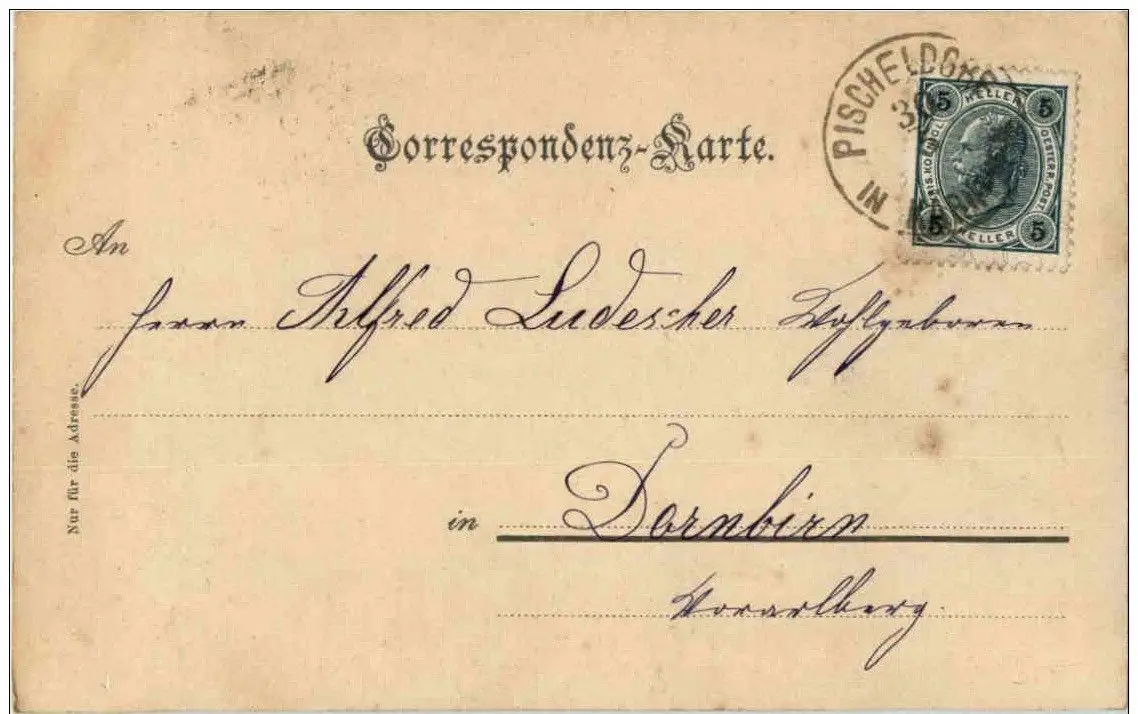 Correspondenz-Karte.
PISCHELDORF
IN
5 HELLER 5
OESTERR. POST.
5 HELLER 5
An
Herrn Alfred Ludescher Wohlgeboren
in Dornbirn
Vorarlberg.
Nur für die Adresse.